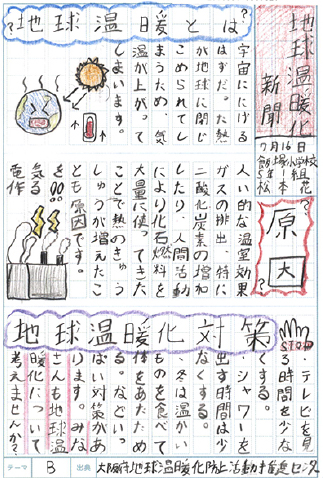 地球温暖化
新聞
7月16日
小学校
5年1組
松本花
?地球温暖とは?
宇宙ににげる
はずだった熱
が地球に閉じ
こめられてし
まうため、気
温が上がって
しまいます。
?原因?
人い的な温室効果
ガスの排出、特に
二酸化炭素の増加
したり、人間活動
により化石燃料を
大量に使ってきた
ことで熱のきゅう
しゅうが増えたこ
とも原因です。
電気を
作る
地球温暖化対策
STOP
・テレビを見
る時間を少な
くする。
・シャワーを
出す時間は少
なくする。
・冬は温かい
ものを食べて
体をあたため
る。などいっ
ぱい対策があ
ります。みな
さんも地球温
暖化について
考えませんか?
テーマ B 出典 大阪府地球温暖化防止活動推進センター